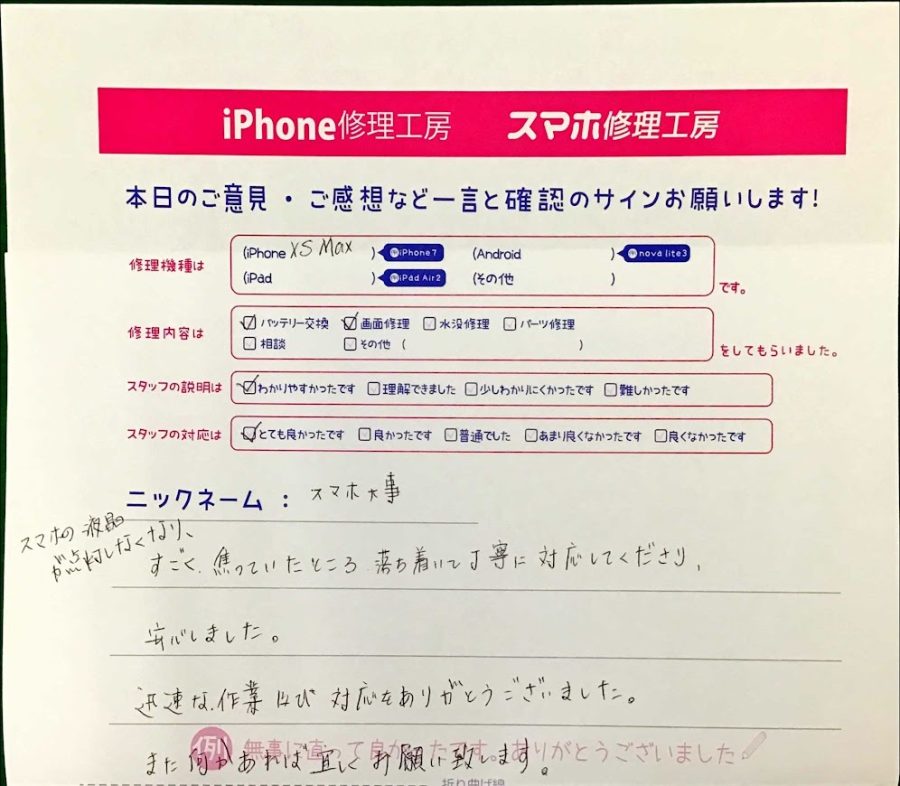 iPhone修理工房 スマホ修理工房
本日のご意見・ご感想など一言と確認のサインお願いします!
修理機種は (iPhone XS Max ) 例iPhone7 (Android ) 例nova lite3
(iPad ) 例iPad Air2 (その他 ) です。
修理内容は ☑バッテリー交換 ☑画面修理 □水没修理 □パーツ修理
□相談 □その他 ( ) をしてもらいました。
スタッフの説明は ☑わかりやすかったです □理解できました □少しわかりにくかったです □難しかったです
スタッフの対応は ☑とても良かったです □良かったです □普通でした □あまり良くなかったです □良くなかったです
ニックネーム : スマホ大事
スマホの液晶
が点灯しなくなり、
すごく焦っていたところ落ち着いて丁寧に対応してくださり、
安心しました。
迅速な作業及び対応をありがとうございました。
例 無事に直って良かったです。ありがとうございました
また何かあれば宜しくお願い致します。
折り曲げ線